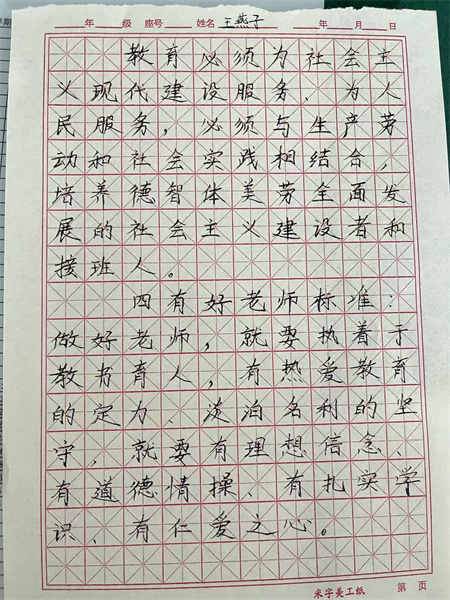 年 级 座号 姓名 王燕子 年 月 日
教育必须为社会主
义现代建设服务、为人
民服务，必须与生产劳
动和社会实践相结合，
培养德智体美劳全面发
展的社会主义建设者和
接班人。
四有好老师标准：
做好老师，就要执着于
教书育人，有热爱教育
的定力、淡泊名利的坚
守，就要有理想信念、
有道德情操、有扎实学
识、有仁爱之心。
米字美工纸 第 页